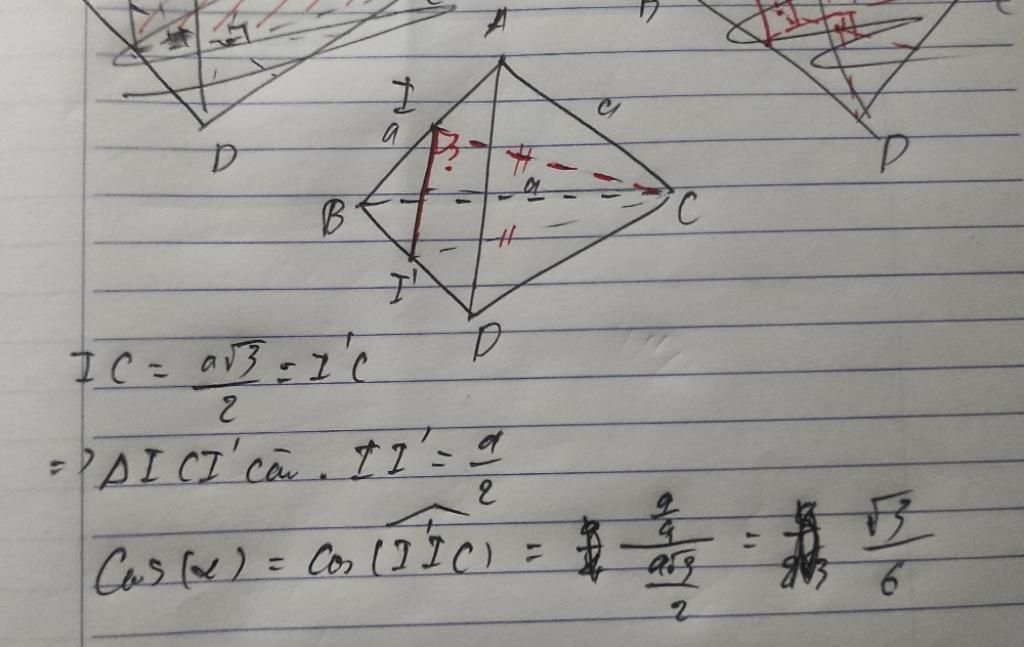 D
D
A
I
a
a
?
B
a
C
I'
D
IC = a√3/2 = I'C
=> ΔICI' cân. II' = a/2
Cos(α) = Cos(II'C) = (a/4)/(a√3/2) = √3/6